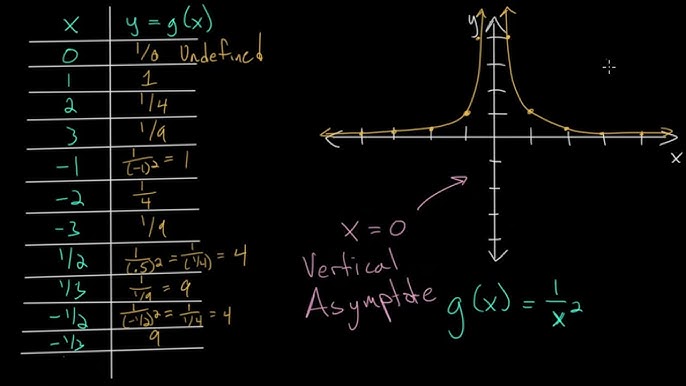 x y = g(x)
0 1/0 Undefined
1 1
2 1/4
3 1/9
-1 1/(-1)² = 1
-2 1/4
-3 1/9
1/2 1/(.5)² = 1/(1/4) = 4
1/3 1/1/9 = 9
-1/2 1/(-1/2)² = 1/1/4 = 4
-1/3 9
y
x
x = 0
Vertical
Asymptote
g(x) = 1/x²